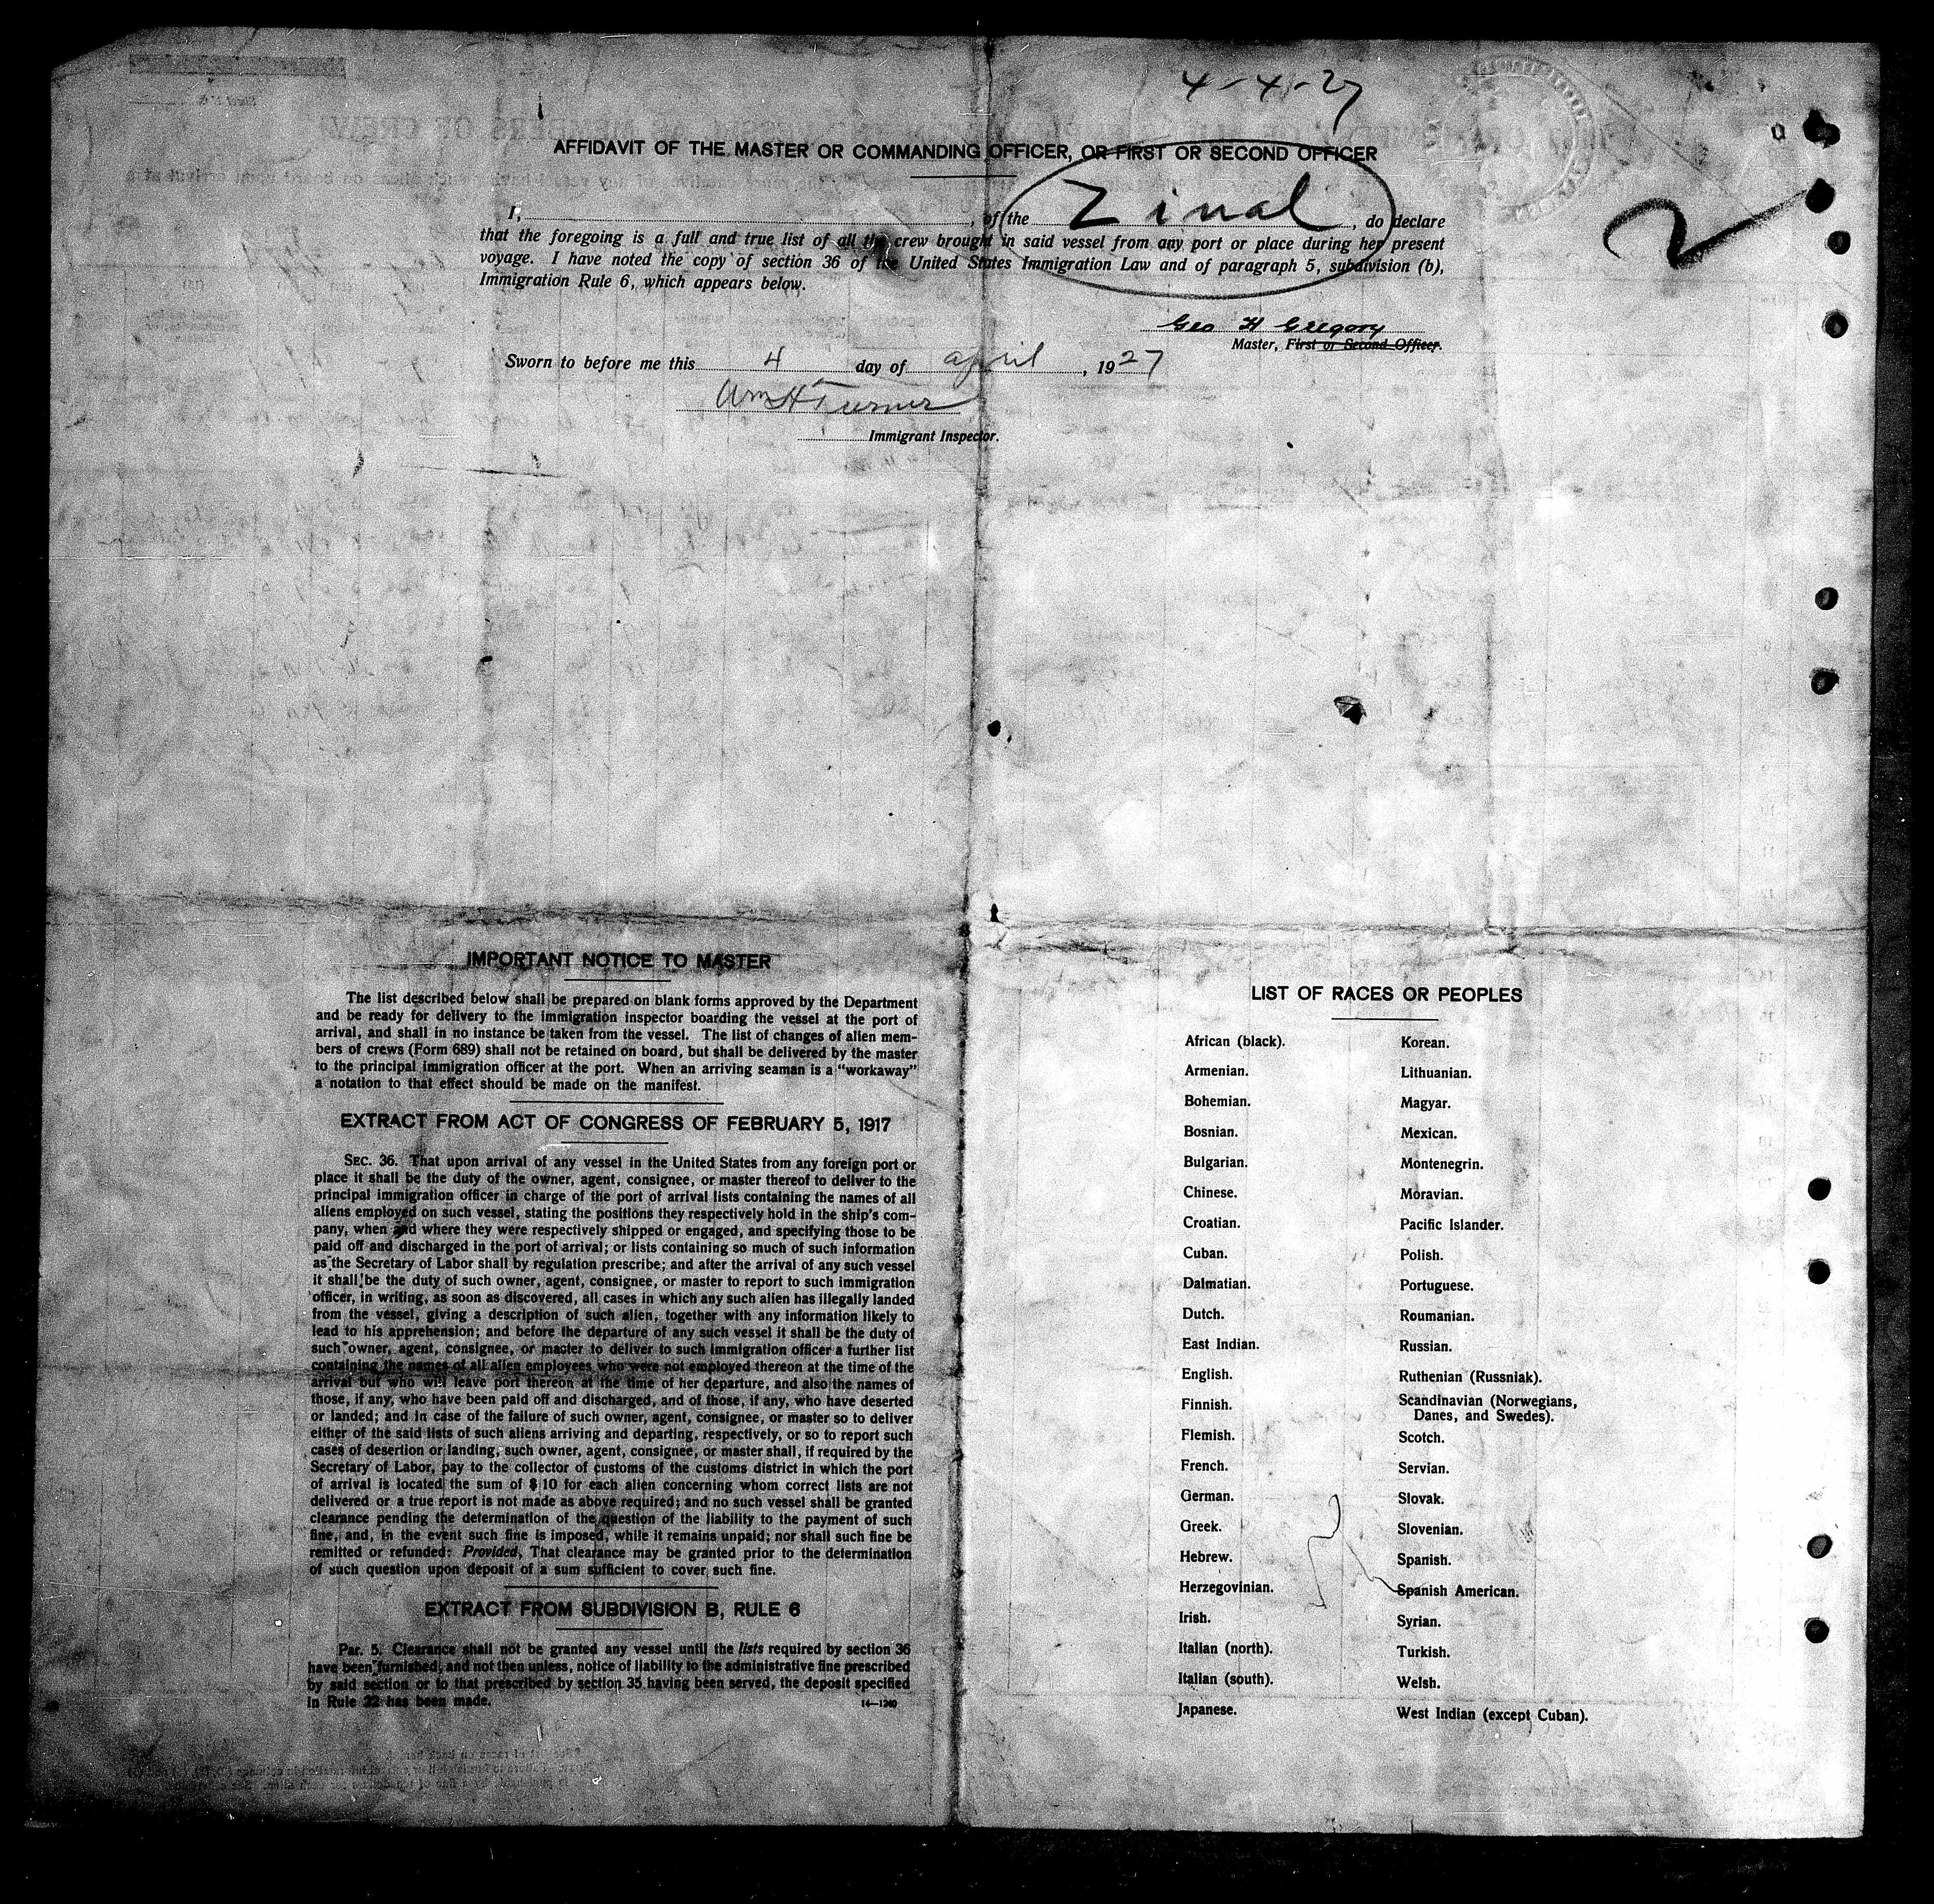 4-4-27
AFFIDAVIT OF THE MASTER OR COMMANDING OFFICER, OR FIRST OR SECOND OFFICER
I, , of the Zinal, do declare
that the foregoing is a full and true list of all the crew brought in said vessel from any port or place during her present
voyage. I have noted the copy of section 36 of the United States Immigration Law and of paragraph 5, subdivision (b),
Immigration Rule 6, which appears below.
2
Geo H Gregory
Master, First or Second Officer.
Sworn to before me this 4 day of april, 1927
Wm H Turner
Immigrant Inspector.
IMPORTANT NOTICE TO MASTER
The list described below shall be prepared on blank forms approved by the Department
and be ready for delivery to the immigration inspector boarding the vessel at the port of
arrival, and shall in no instance be taken from the vessel. The list of changes of alien mem-
bers of crews (Form 689) shall not be retained on board, but shall be delivered by the master
to the principal immigration officer at the port. When an arriving seaman is a "workaway"
a notation to that effect should be made on the manifest.
EXTRACT FROM ACT OF CONGRESS OF FEBRUARY 5, 1917
SEC. 36. That upon arrival of any vessel in the United States from any foreign port or
place it shall be the duty of the owner, agent, consignee, or master thereof to deliver to the
principal immigration officer in charge of the port of arrival lists containing the names of all
aliens employed on such vessel, stating the positions they respectively hold in the ship's com-
pany, when and where they were respectively shipped or engaged, and specifying those to be
paid off and discharged in the port of arrival; or lists containing so much of such information
as the Secretary of Labor shall by regulation prescribe; and after the arrival of any such vessel
it shall be the duty of such owner, agent, consignee, or master to report to such immigration
officer, in writing, as soon as discovered, all cases in which any such alien has illegally landed
from the vessel, giving a description of such alien, together with any information likely to
lead to his apprehension; and before the departure of any such vessel it shall be the duty of
such owner, agent, consignee, or master to deliver to such immigration officer a further list
containing the names of all alien employees who were not employed thereon at the time of the
arrival but who will leave port thereon at the time of her departure, and also the names of
those, if any, who have been paid off and discharged, and of those, if any, who have deserted
or landed; and in case of the failure of such owner, agent, consignee, or master so to deliver
either of the said lists of such aliens arriving and departing, respectively, or so to report such
cases of desertion or landing, such owner, agent, consignee, or master shall, if required by the
Secretary of Labor, pay to the collector of customs of the customs district in which the port
of arrival is located the sum of $10 for each alien concerning whom correct lists are not
delivered or a true report is not made as above required; and no such vessel shall be granted
clearance pending the determination of the question of the liability to the payment of such
fine, and, in the event such fine is imposed, while it remains unpaid; nor shall such fine be
remitted or refunded: Provided, That clearance may be granted prior to the determination
of such question upon deposit of a sum sufficient to cover such fine.
EXTRACT FROM SUBDIVISION B, RULE 6
Par. 5. Clearance shall not be granted any vessel until the lists required by section 36
have been furnished, and not then unless, notice of liability to the administrative fine prescribed
by said section or to that prescribed by section 35 having been served, the deposit specified
in Rule 22 has been made.
14—1240
LIST OF RACES OR PEOPLES
African (black).
Armenian.
Bohemian.
Bosnian.
Bulgarian.
Chinese.
Croatian.
Cuban.
Dalmatian.
Dutch.
East Indian.
English.
Finnish.
Flemish.
French.
German.
Greek.
Hebrew.
Herzegovinian.
Irish.
Italian (north).
Italian (south).
Japanese.
Korean.
Lithuanian.
Magyar.
Mexican.
Montenegrin.
Moravian.
Pacific Islander.
Polish.
Portuguese.
Roumanian.
Russian.
Ruthenian (Russniak).
Scandinavian (Norwegians,
Danes, and Swedes).
Scotch.
Servian.
Slovak.
Slovenian.
Spanish.
Spanish American.
Syrian.
Turkish.
Welsh.
West Indian (except Cuban).